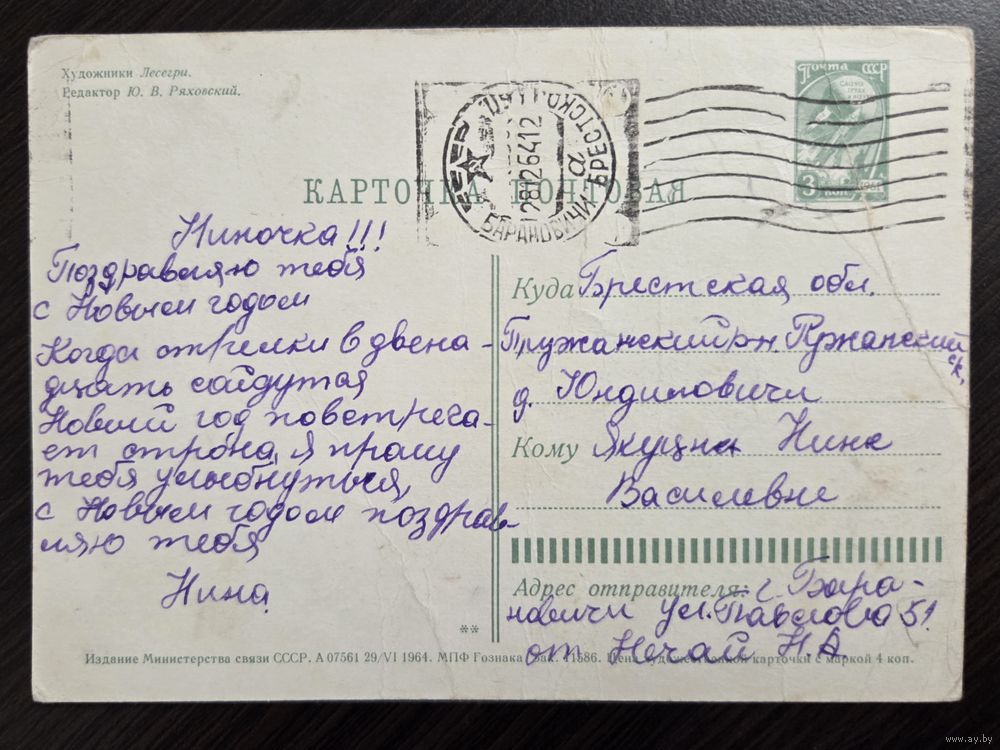 Художники Лесегри.
Редактор Ю. В. Ряховский.
ПОЧТА СССР
3 КОП.
1961
БАРАНОВИЧИ БРЕСТСКОЙ
28126412
а
КАРТОЧКА ПОЧТОВАЯ
Ниночка!!!
Поздравляю тебя
с Новым годом
Когда стрелки в двена-
дцать сайдутся
Новый год повстреча-
ет строна, я прошу
тебя улыбнуться,
с Новым годом поздрав-
ляю тебя
Нина.
Куда Брестская обл.
Пружанский р-н. Ружанский
ск,
д. Юндиловичи
Кому Якуцня Нине
Василевне
Адрес отправителя: г. Бара-
новичи ул. Павлова 51
от Нечай Н.А
**
Издание Министерства связи СССР. А 07561 29/VI 1964. МПФ Гознака Зак. 11586. Цена художественной карточки с маркой 4 коп.
www.ay.by